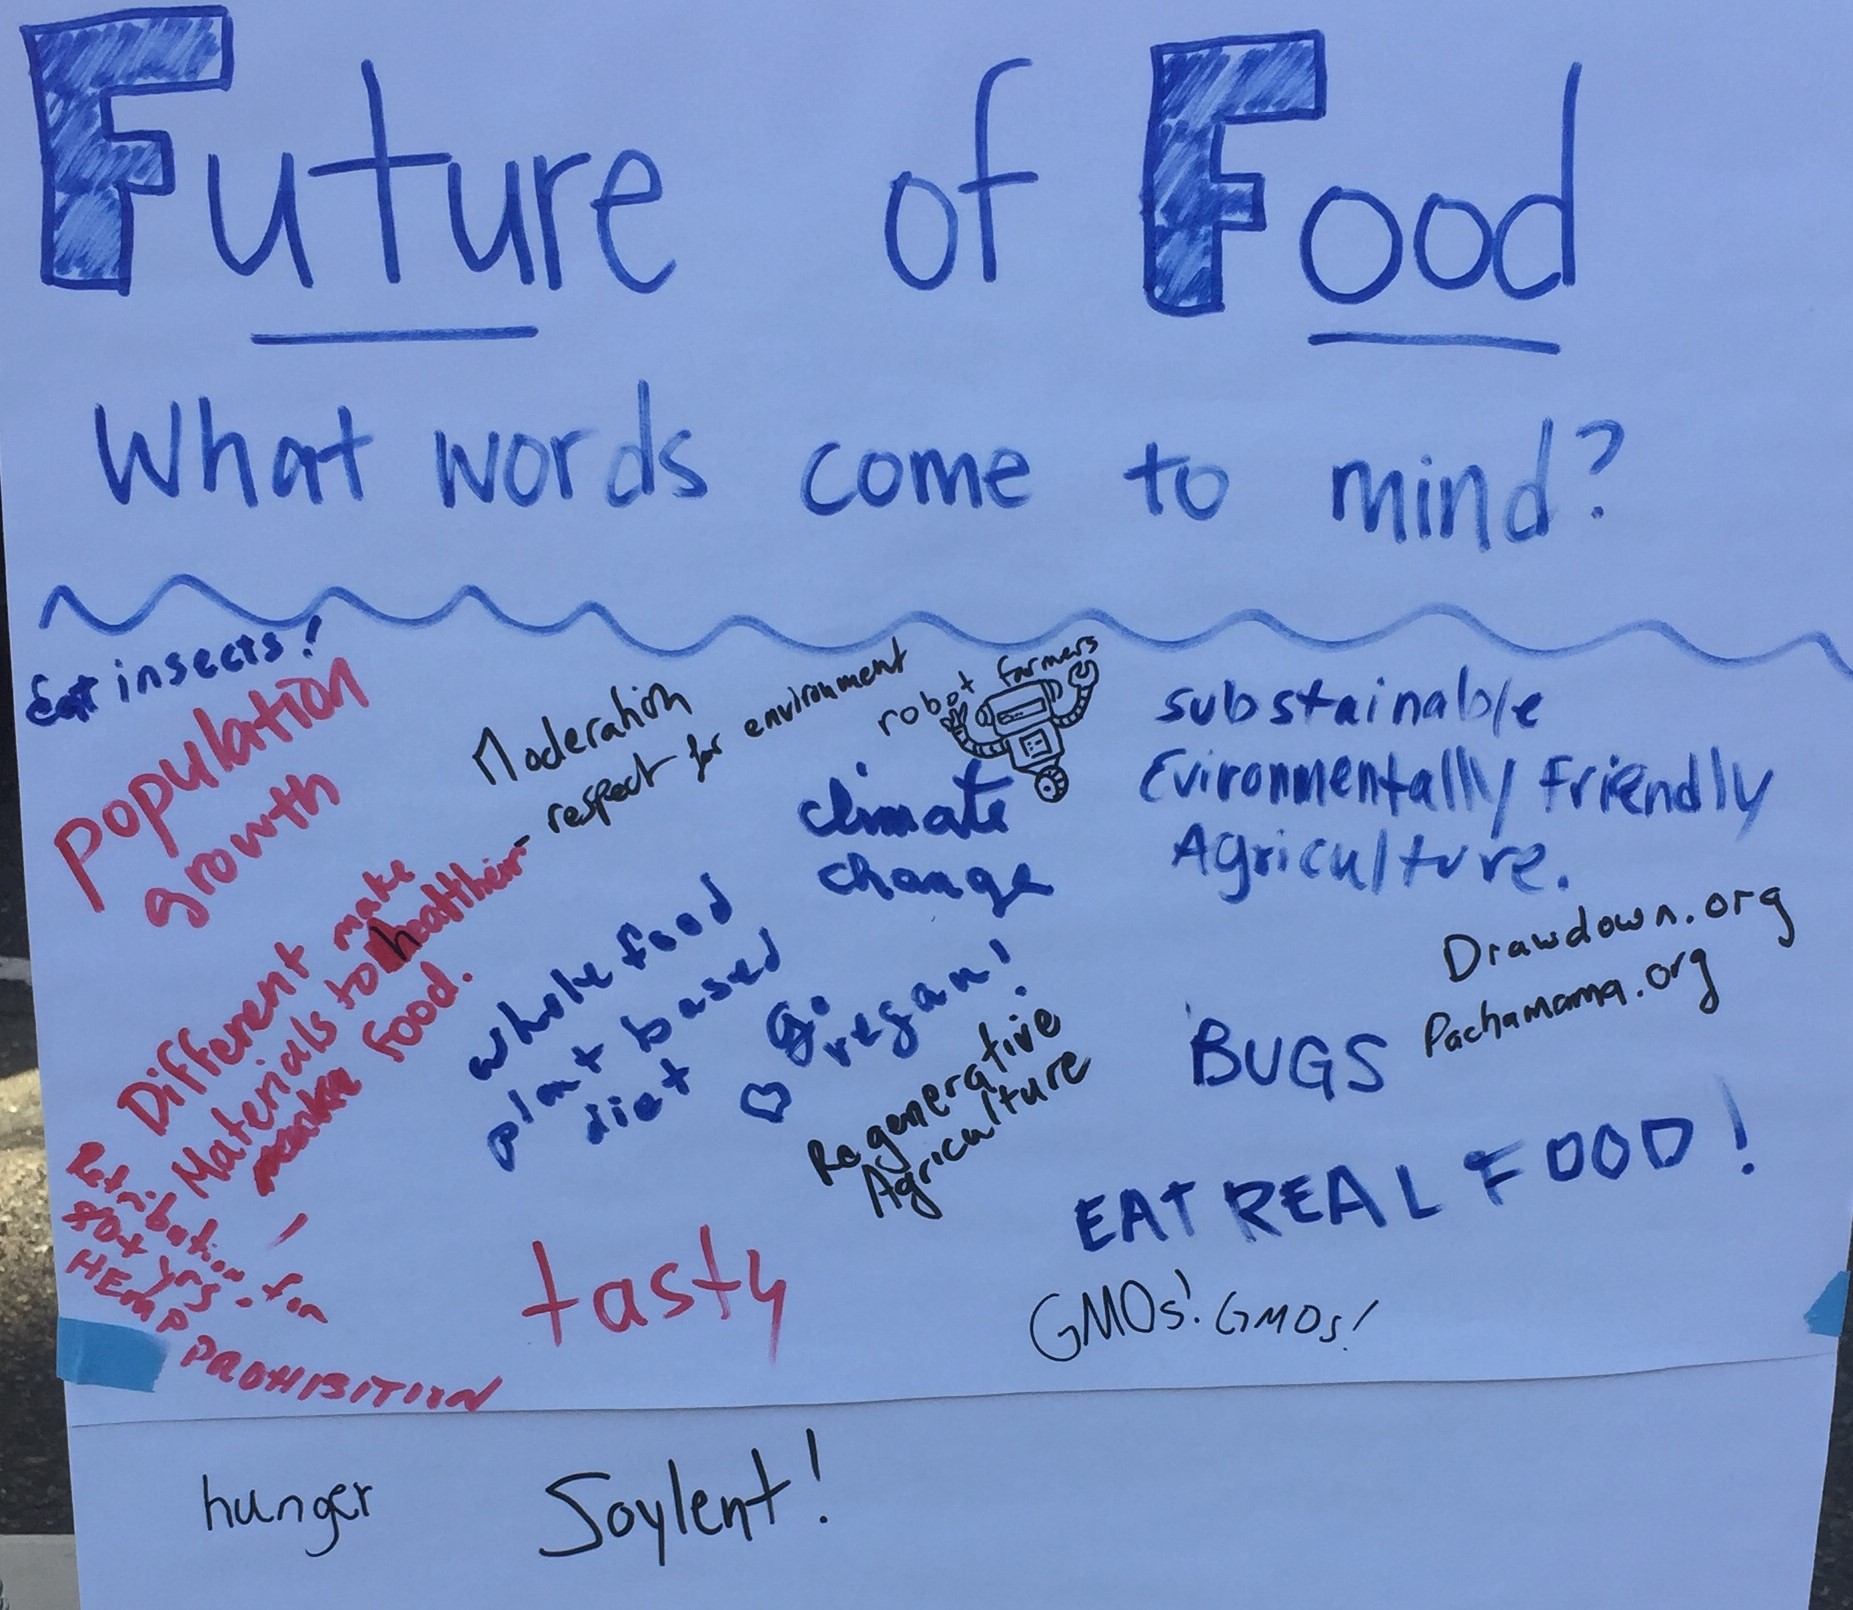 Future of Food
What words come to mind?
Eat insects!
Population
growth
Moderation
respect for environment
robot farmers
climate
change
substainable
Evironmentally Friendly
Agriculture.
Different make
Materials to healthier
food.
whole food
plant based
diet
Go
vegan!
Regenerative
Agriculture
Drawdown.org
Pachamama.org
BUGS
EAT REAL FOOD!
Retribution for
HEMP PROHIBITION
tasty
GMOs! GMOs!
hunger
Soylent!